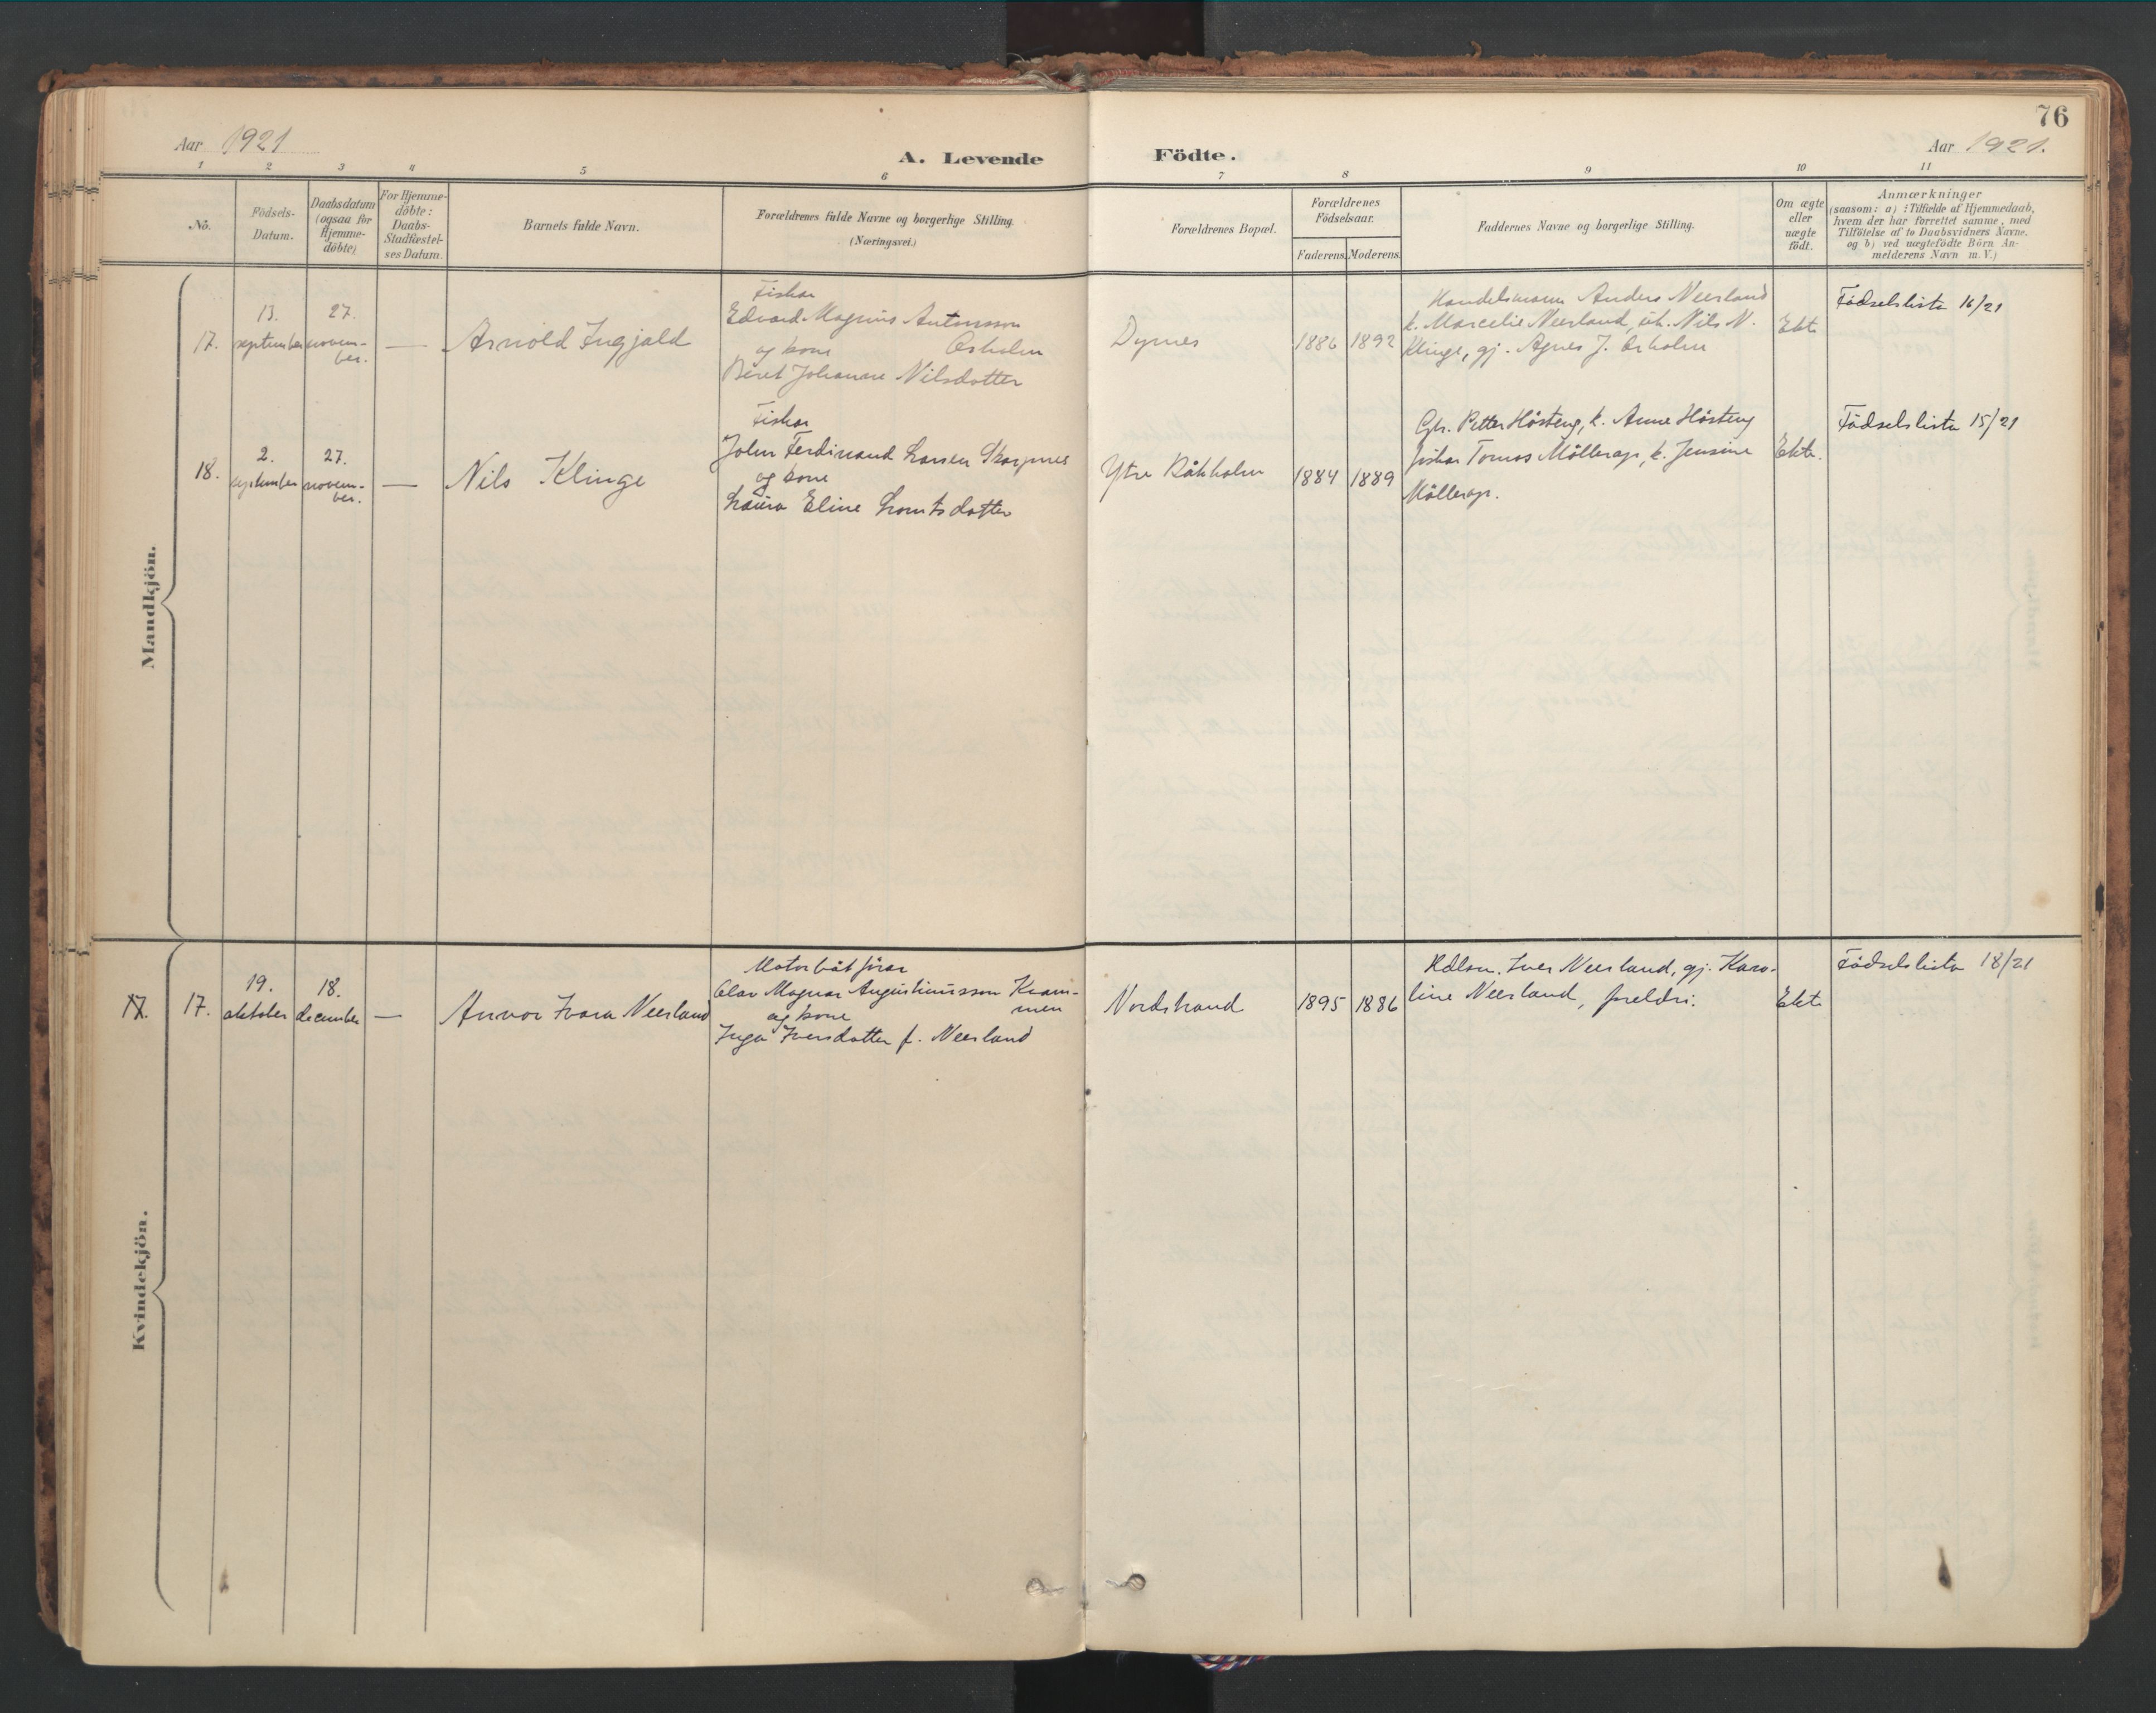 76
Aar 1921
Aar 1921.
A. Levende Födte.
1 2 3 4 5 6 7 8 9 10 11
No.
Födsels-
Datum.
Daabsdatum
(ogsaa for
Hjemme-
döbte)
For Hjemme-
döbte:
Daabs-
Stadfæstel-
ses Datum.
Barnets fulde Navn.
Forældrenes fulde Navne og borgerlige Stilling.
(Næringsvei.)
Forældrenes Bopæl.
Forældrenes
Födselsaar.
Faderens. Moderens.
Faddernes Navne og borgerlige Stilling.
Om ægte
eller
uægte
födt.
Anmærkninger
(saasom: a) : Tilfælde af Hjemmedaab,
hvem der har forrettet samme, med
Tilföielse af to Daabsvidners Navne.
og b) ved uægtefödte Börn An-
melderens Navn m. V.)
Mandkjön.
17.
13.
september
27.
novem-
ber.
—
Arnold Ingjald
Fiskar
Edvard Magnus Antonsson
og kone Orholm
Beret Johanne Nilsdotter
Dyrnes
1886
1892
Handelsmann Anders Neerland
k. Marcelie Neerland, Nils N.
Klinge, gj. Agnes J. Orholm
Ekte
Fødselslista 16/21
18.
2.
september
27.
novem-
ber.
—
Nils Klinge
Fiskar
John Ferdinand Larsen Skarpnes
og kone
Laura Eline Lorntsdotter
Ytre Råkholm
1884
1889
Petter Hösteng, k. Anne Hösteng
fiskar Tomas Möllerop, k. Jensine
Möllerop.
Ekte.
Fødselslista 15/21
Kvindekjön.
17.
17.
19.
oktober
18.
december
—
Anvor Ivara Neerland
Motorbåtförar
Olav Magnar Augustinusson Kram-
og kone men
Inga Iversdotter f. Neerland
Nordstrand
1895
1886
Hdlsm. Iver Neerland, gj. Karo-
line Neerland, foreldri.
Ekte
Fødselslista 18/21